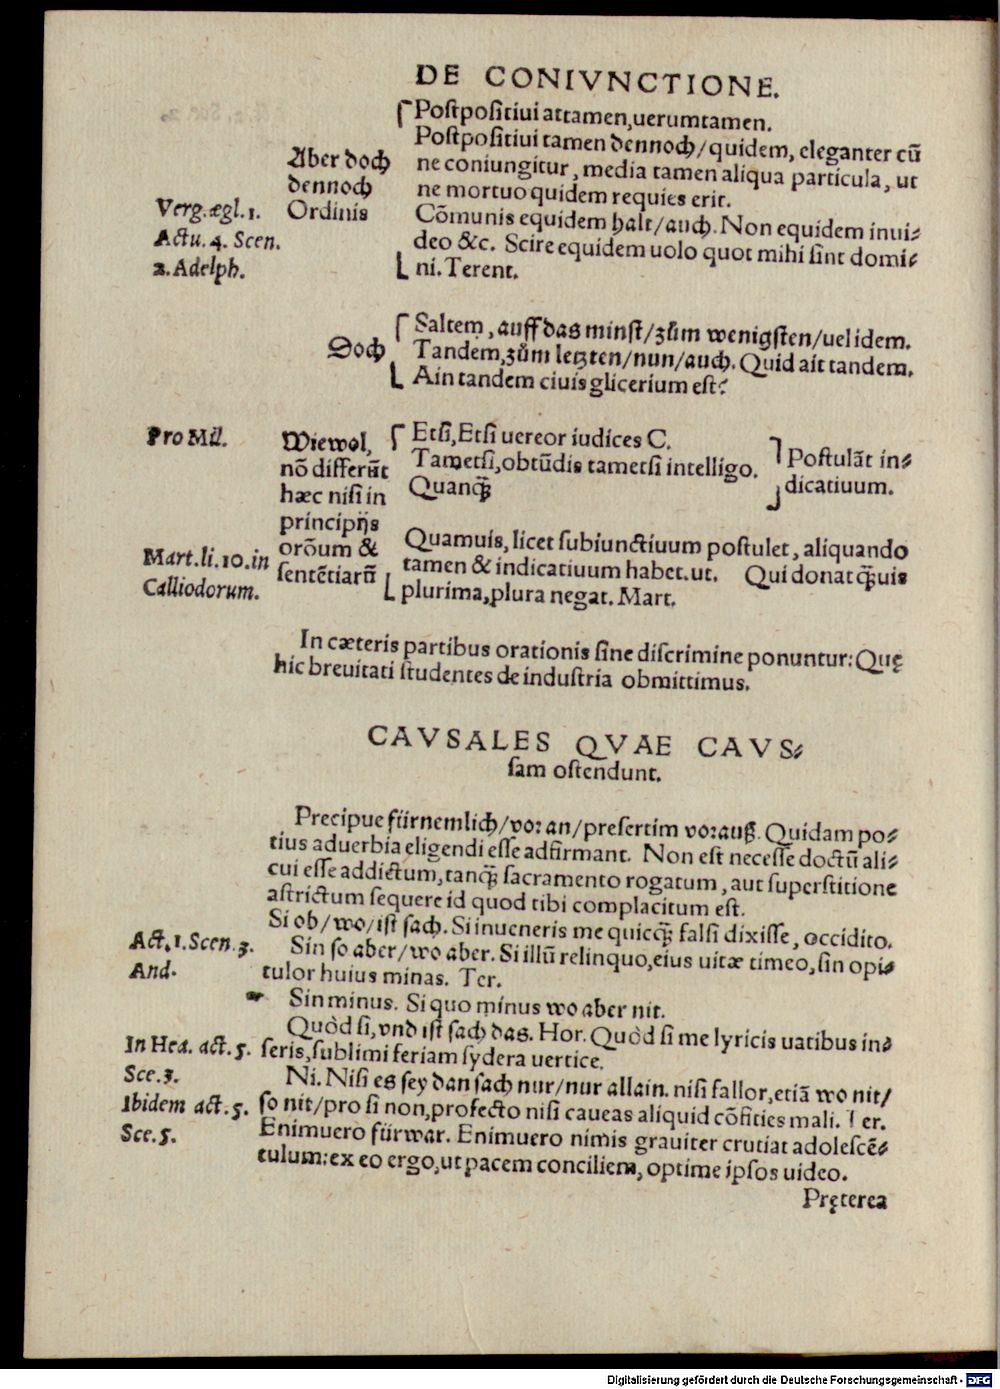 DE CONIVNCTIONE.
Postpositiui attamen, uerumtamen.
Postpositiui tamen dennoch/quidem, eleganter cũ
ne coniungitur, media tamen aliqua particula, ut
ne mortuo quidem requies erit.
Cõmunis equidem halt/auch. Non equidem inui⸗
deo &c. Scire equidem uolo quot mihi sint domi⸗
ni. Terent.
Aber doch
dennoch
Ordinis
Verg. ægl. 1.
Actu. 4. Scen.
2. Adelph.
Doch
Saltem, auff das minst/zům wenigsten/uel idem.
Tandem, zům letzten/nun/auch. Quid ait tandem.
Ain tandem ciuis glicerium est?
Pro Mil.
Wiewol,
nõ differũt
hæc nisi in
principijs
orõum &
sentẽtiarũ
Etsi, Etsi uereor iudices C.
Tametsi, obtũdis tametsi intelligo.
Quanq̃
Postulãt in⸗
dicatiuum.
Quamuis, licet subiunctiuum postulet, aliquando
tamen & indicatiuum habet. ut. Qui donat q̃uis
plurima, plura negat. Mart.
Mart. li. 10. in
Calliodorum.
In cæteris partibus orationis sine discrimine ponuntur: Quę
hic breuitati studentes de industria obmittimus.
CAVSALES QVAE CAVS⸗
sam ostendunt.
Precipue fürnemlich/voran/presertim vorauß. Quidam po⸗
tius aduerbia eligendi esse adfirmant. Non est necesse doctũ ali⸗
cui esse addictum, tanq̃ sacramento rogatum, aut superstitione
astrictum sequere id quod tibi complacitum est.
Si ob/wo/ist sach. Si inueneris me quicq̃ falsi dixisse, occidito.
Act. 1. Scen. 3.
And.
Sin so aber/wo aber. Si illũ relinquo, eius uitæ timeo, sin opi⸗
tulor huius minas. Ter.
☞ Sin minus. Si quo minus wo aber nit.
Quòd si, vnd ist sach das. Hor. Quòd si me lyricis uatibus in⸗
seris, sublimi feriam sydera uertice.
In Hea. act. 5.
Sce. 3.
Ni. Nisi es sey dan sach nur/nur allain. nisi fallor, etiã wo nit/
so nit/pro si non, profecto nisi caueas aliquid cõficies mali. Ter.
Ibidem act. 5.
Sce. 5.
Enimuero fürwar. Enimuero nimis grauiter crutiat adolescẽ⸗
tulum: ex eo ergo, ut pacem conciliem, optime ipsos uideo.
Pręterea
Digitalisierung gefördert durch die Deutsche Forschungsgemeinschaft - DFG